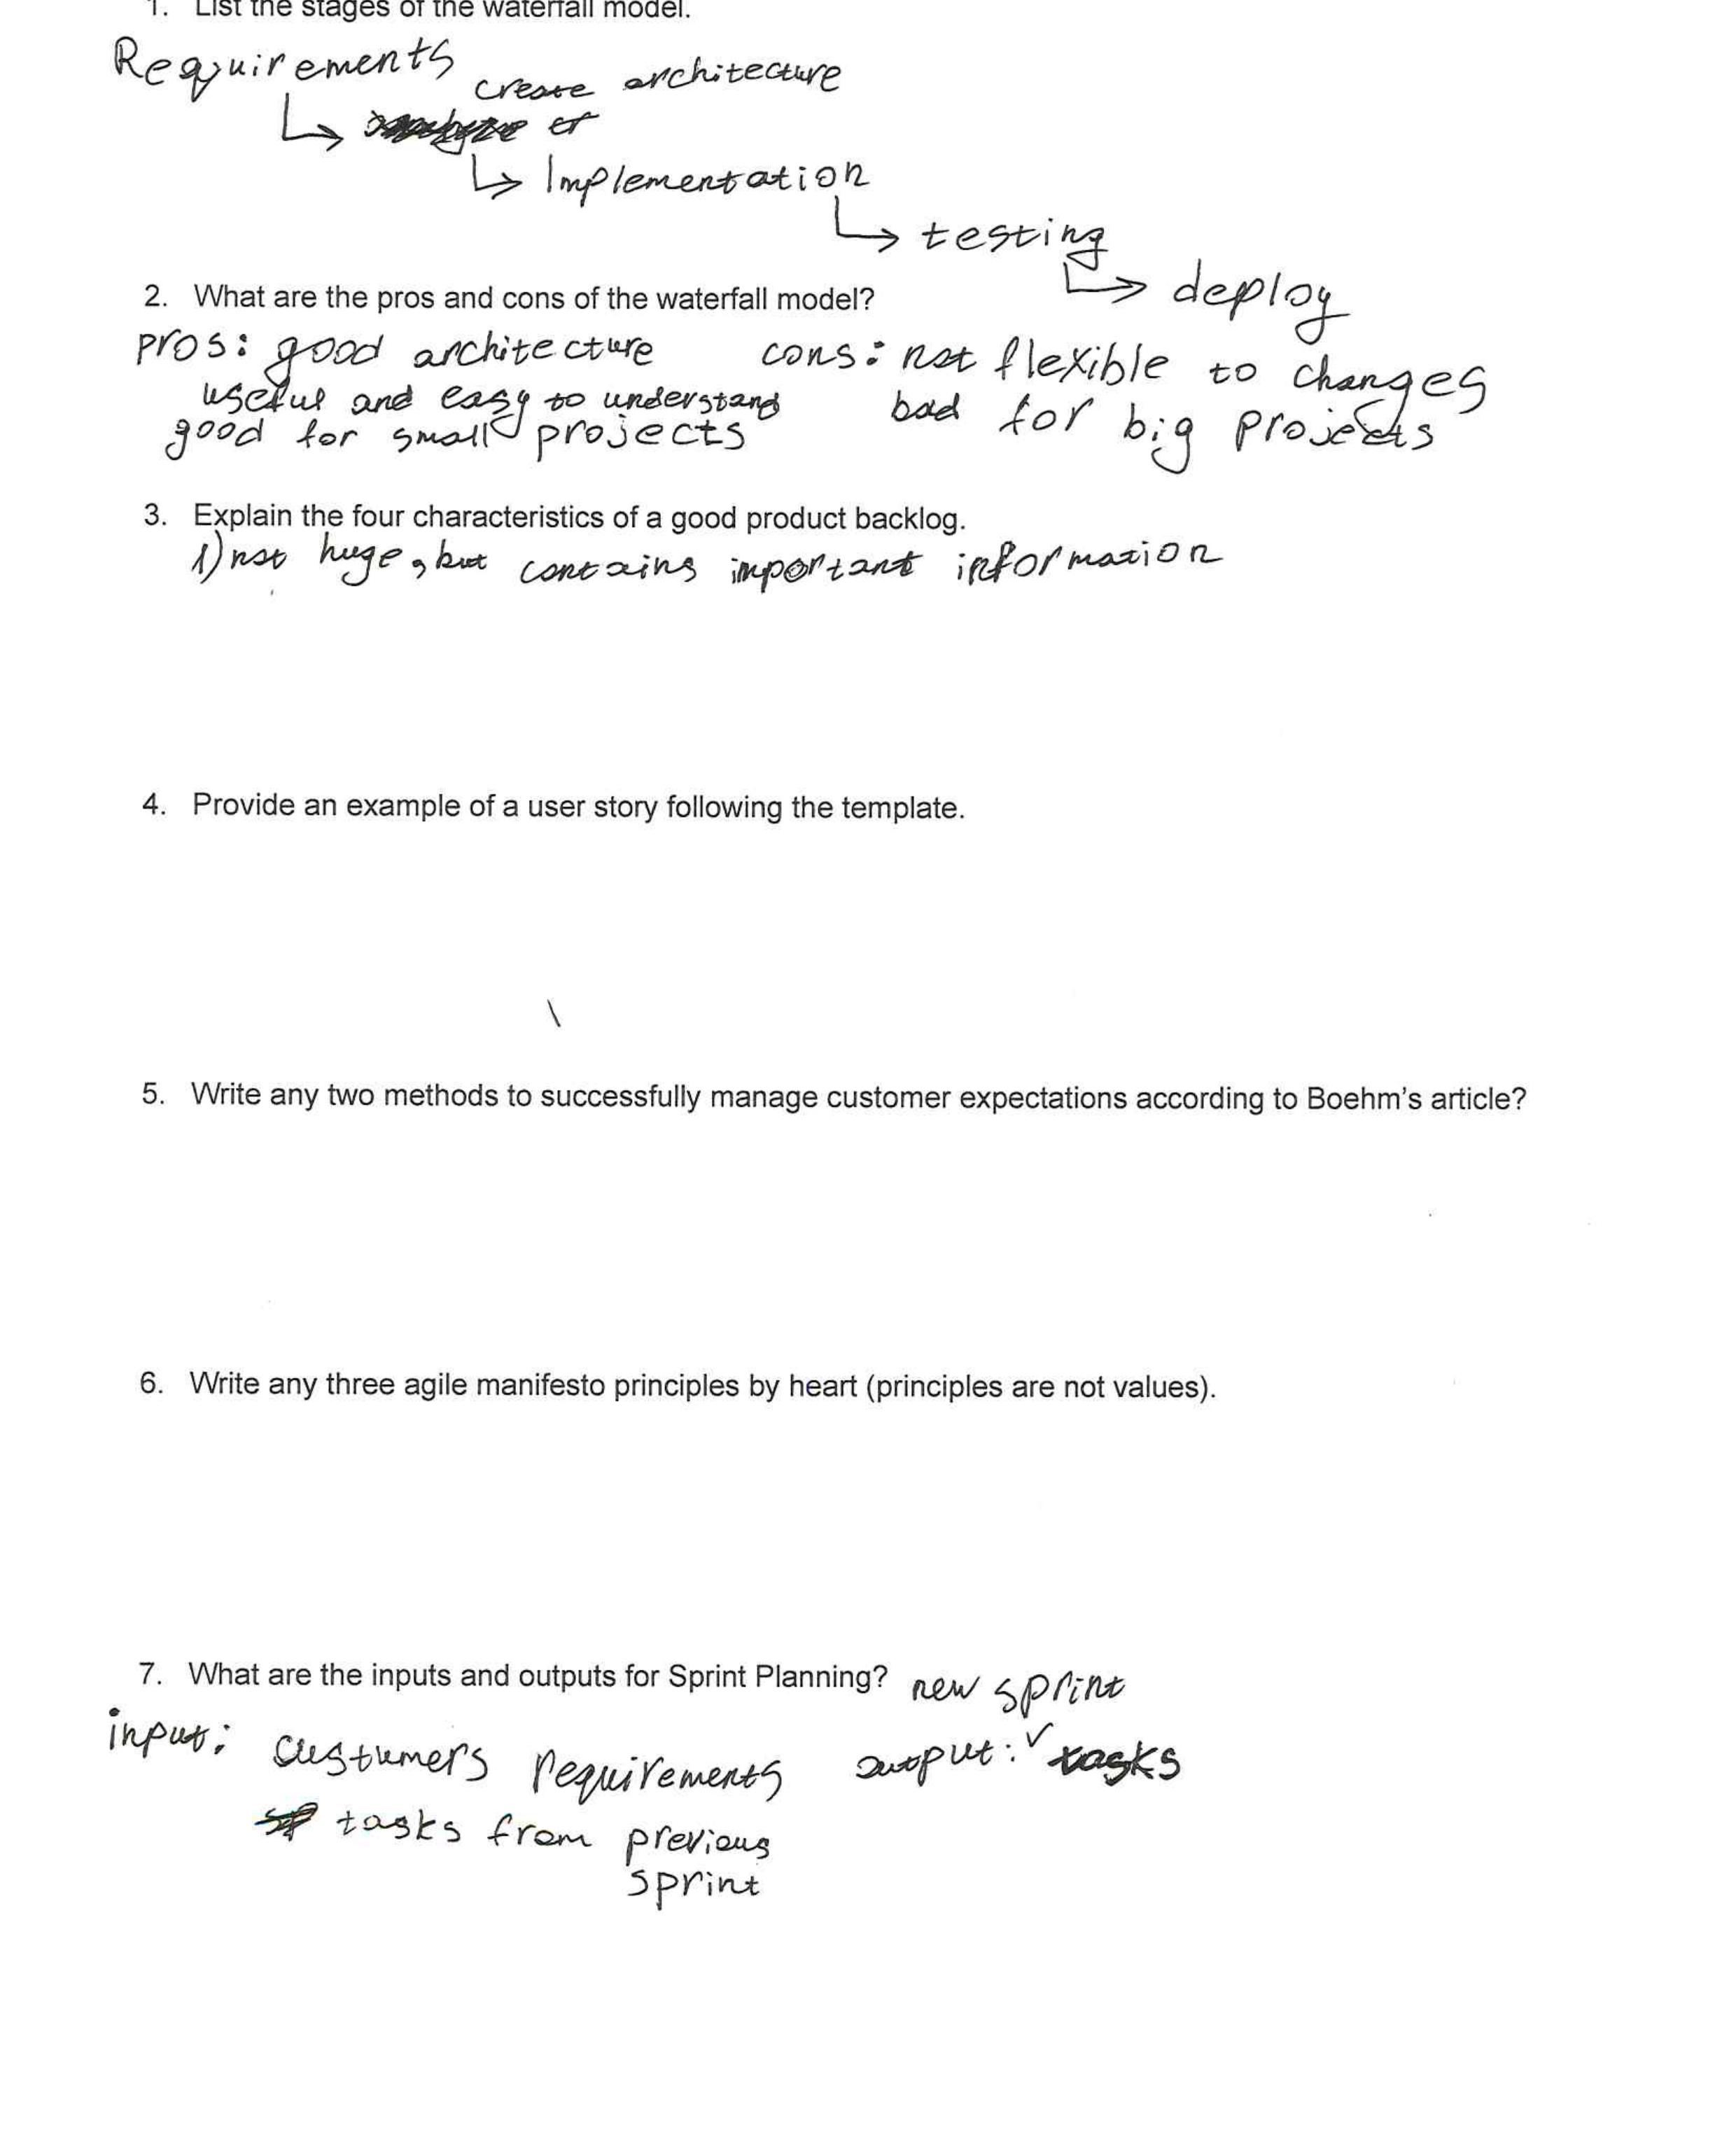 1. List the stages of the waterfall model.
Requirements
create architecture
↳
↳ Implementation
↳ testing
↳ deploy
2. What are the pros and cons of the waterfall model?
pros: good architecture cons: not flexible to changes
useful and easy to understand bad for big projects
good for small projects
3. Explain the four characteristics of a good product backlog.
1) not huge, but contains important information
4. Provide an example of a user story following the template.
5. Write any two methods to successfully manage customer expectations according to Boehm's article?
6. Write any three agile manifesto principles by heart (principles are not values).
7. What are the inputs and outputs for Sprint Planning? new sprint
input: custumers requirements output: ✓ tasks
tasks from previous
sprint